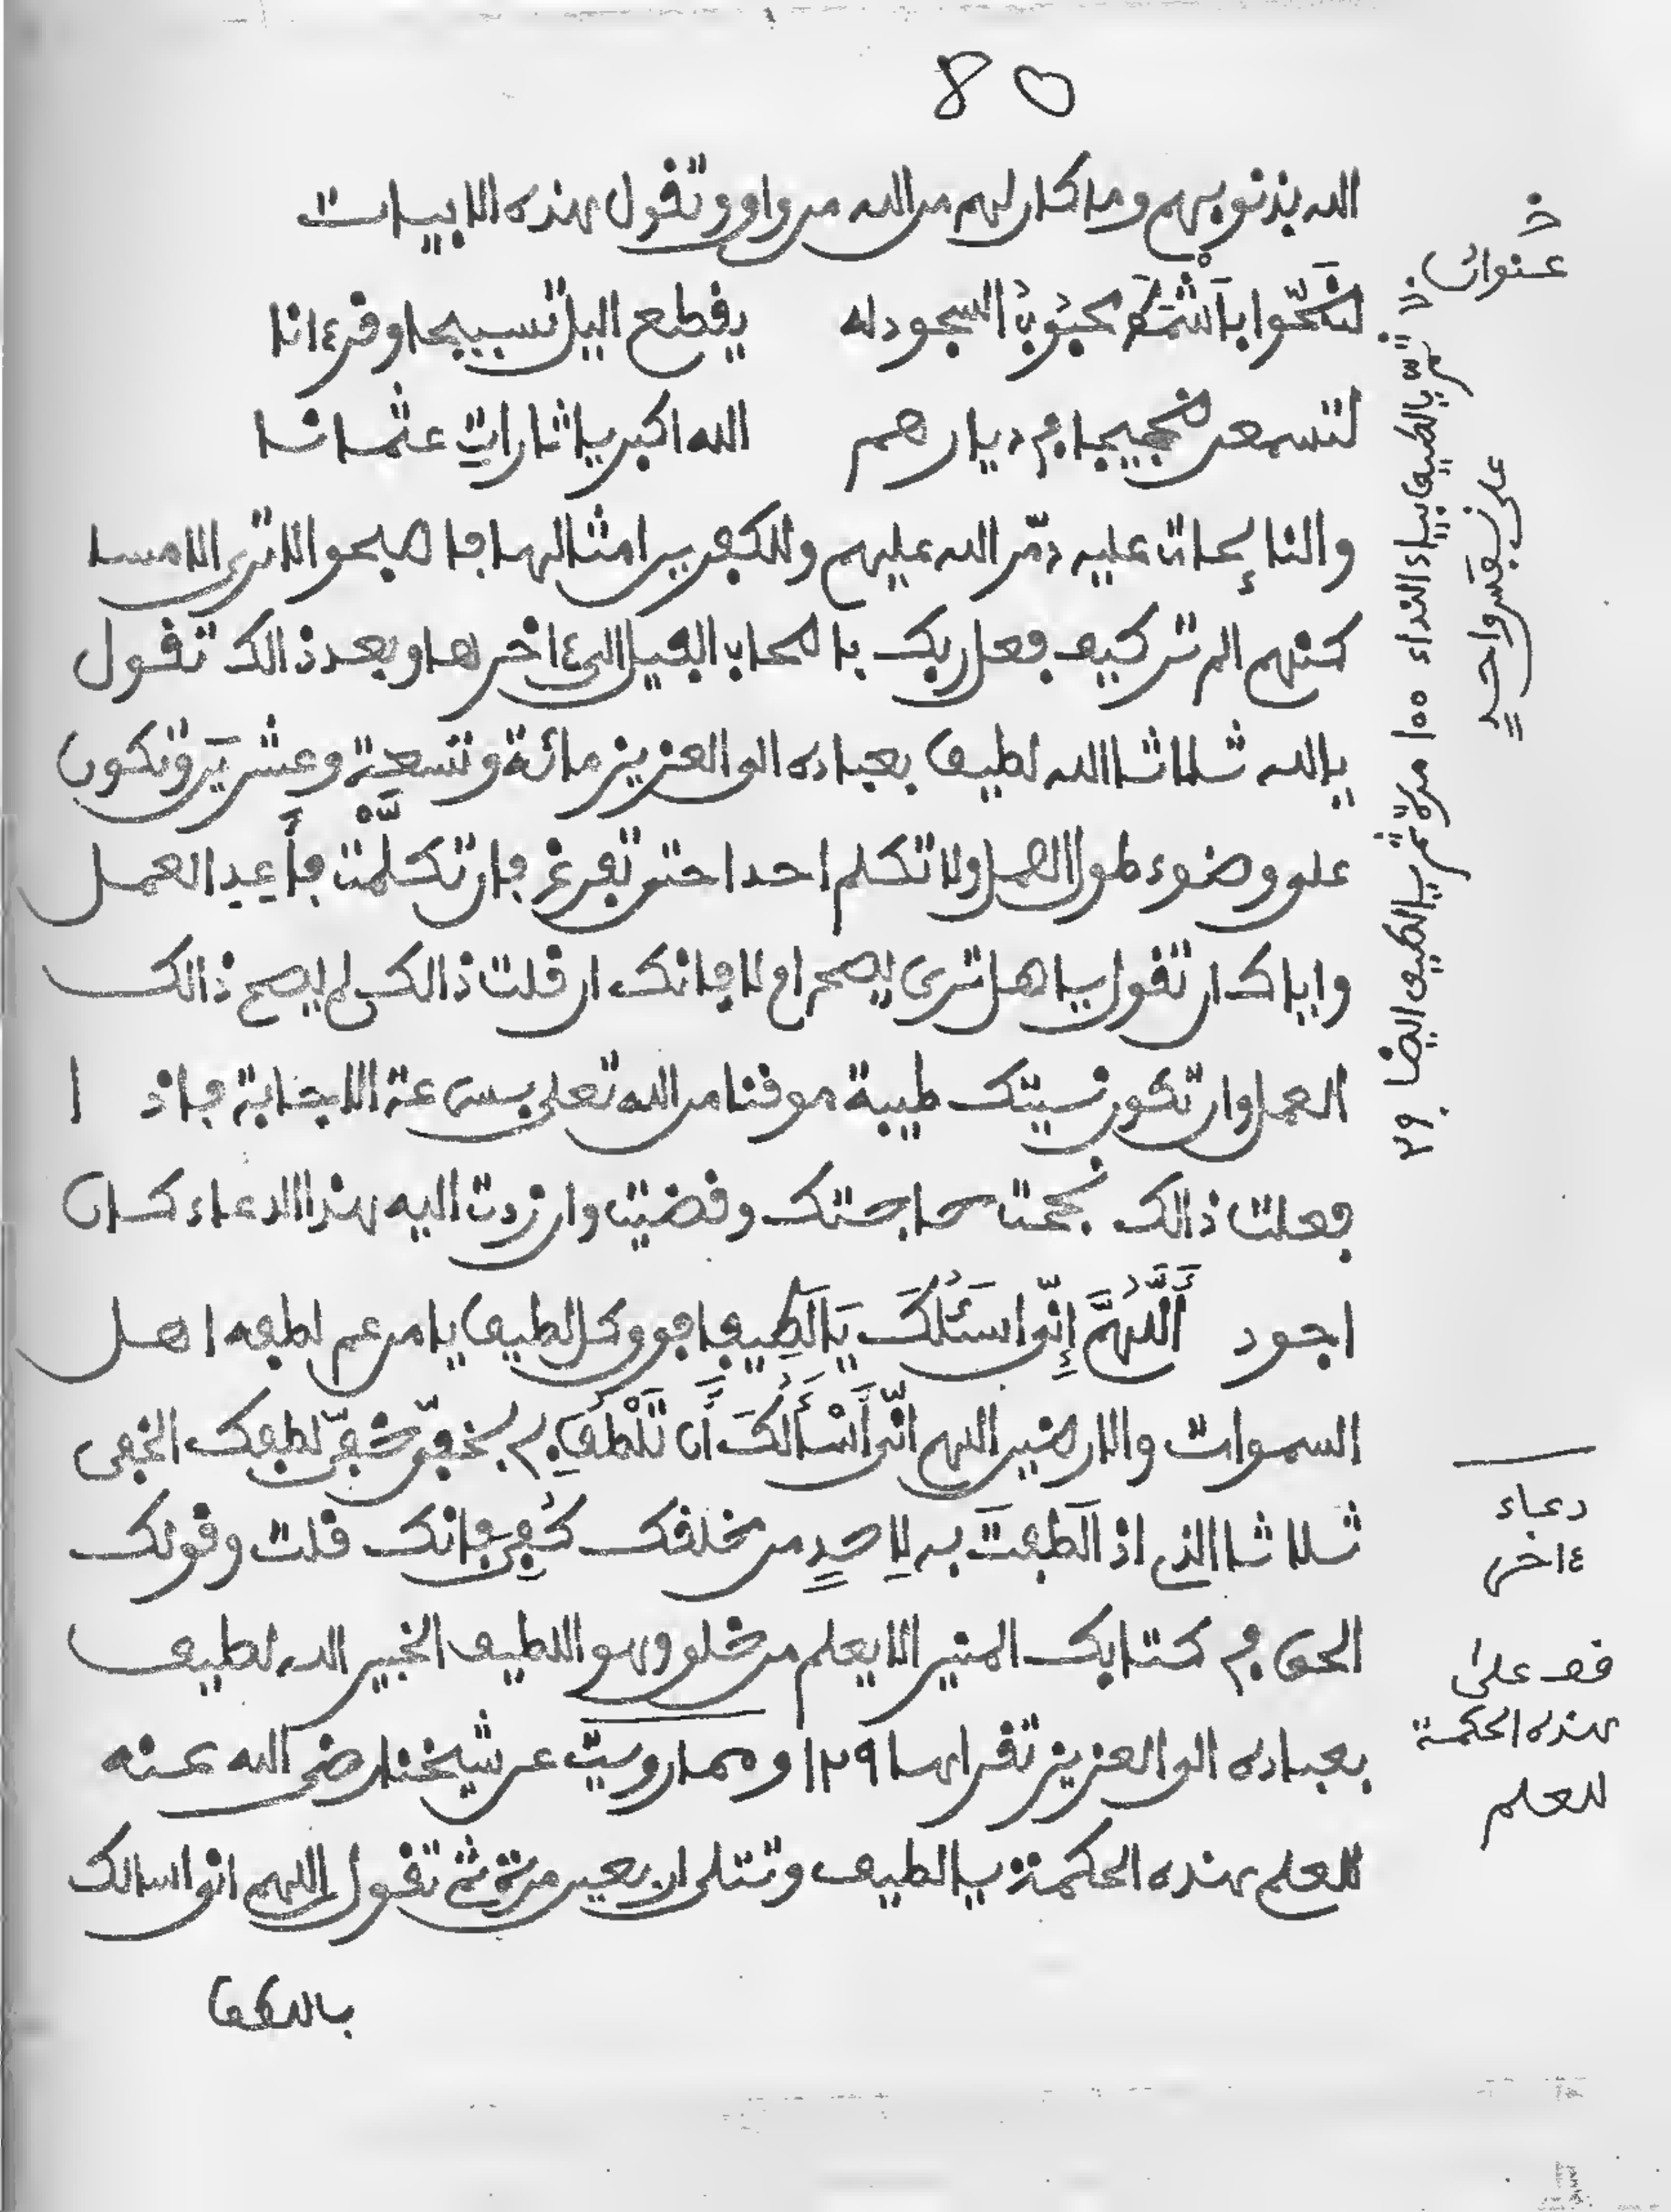 80
الله بذنوبهم وما كان لهم من الله من واق وتقول هذه الابيات
ضحّوا بأشمط عنوان السجود له يقطع اليل تسبيحا وقرءانا
لتسمعن ضجيجا في ديارهم الله اكبر يا ثارات عثمانا
عليه دمّر الله عليهم وللكفرين امثالها فاصبحوا لا ترى الا مسا
كنهم الم تر كيف فعل ربك باصحاب الفيل الى ءاخرها وبعد ذالك تقول
يالله ثلاثا الله لطيف بعباده الى العزيز مائة وتسعة وعشرين وتكون
على وضوء طول العمل ولا تكلم احدا حتى تفرغ فان تكلّمت فأعِدِ العمل
واياك ان تقول يا هل ترى يصح ام لا فانك ان قلت ذالك لم يصح ذالك
العمل وان تكون نيتك طيبة موقنا من الله تعلى بسرعة الاجابة فاذ ا
فعلت ذالك نجحت حاجتك وقضيت وان زدت اليه هذا الدعاء كان
اجود اَللَّهُمَّ إِنّى اسئلك يَا لَطِيفا فوق كل لطيف يا من عم لطفه اهل
السموات والارضين اللهم انّى أَسْأَلُكَ أَن تَلْطُفَ بي بخفىّ خفىّ لطفك الخفى
ثلاثا الذى اذا لَطَفتَ به لِاحدٍ من خلقك كُفِىَ فانك قلت وقولك
الحق في كتابك المنير الا يعلم من خلق وهو اللطيف الخبير الله لطيف
بعباده الى العزيز تقراها ١٢٩ ومما رويت عن شيخنا رضى الله عنه
للعلم هذه الحكمة يالطيف وتتلى اربعين مرة ثم تقول اللهم انى اسالك
باللطف
خ
عنوان
ثم يالطيف بياء النداء ١٠٠ مرة ثم يالطيف ايضا ١٢٩
على نفَس واحدٍ
دعاء
ءاخر
قف على
هذه الحكمة
للعلم